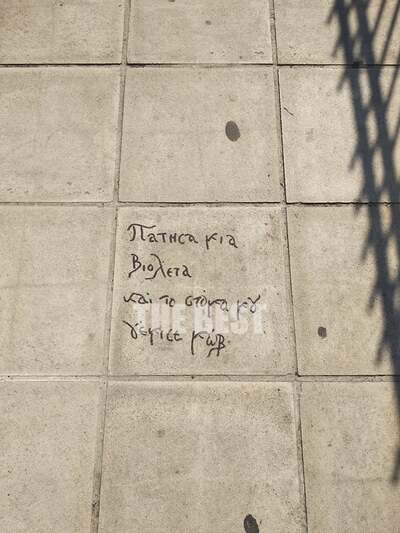 Πατησα μια
Βιολέτα
και το στόμα μου
γέμισε μώβ.
THE BEST